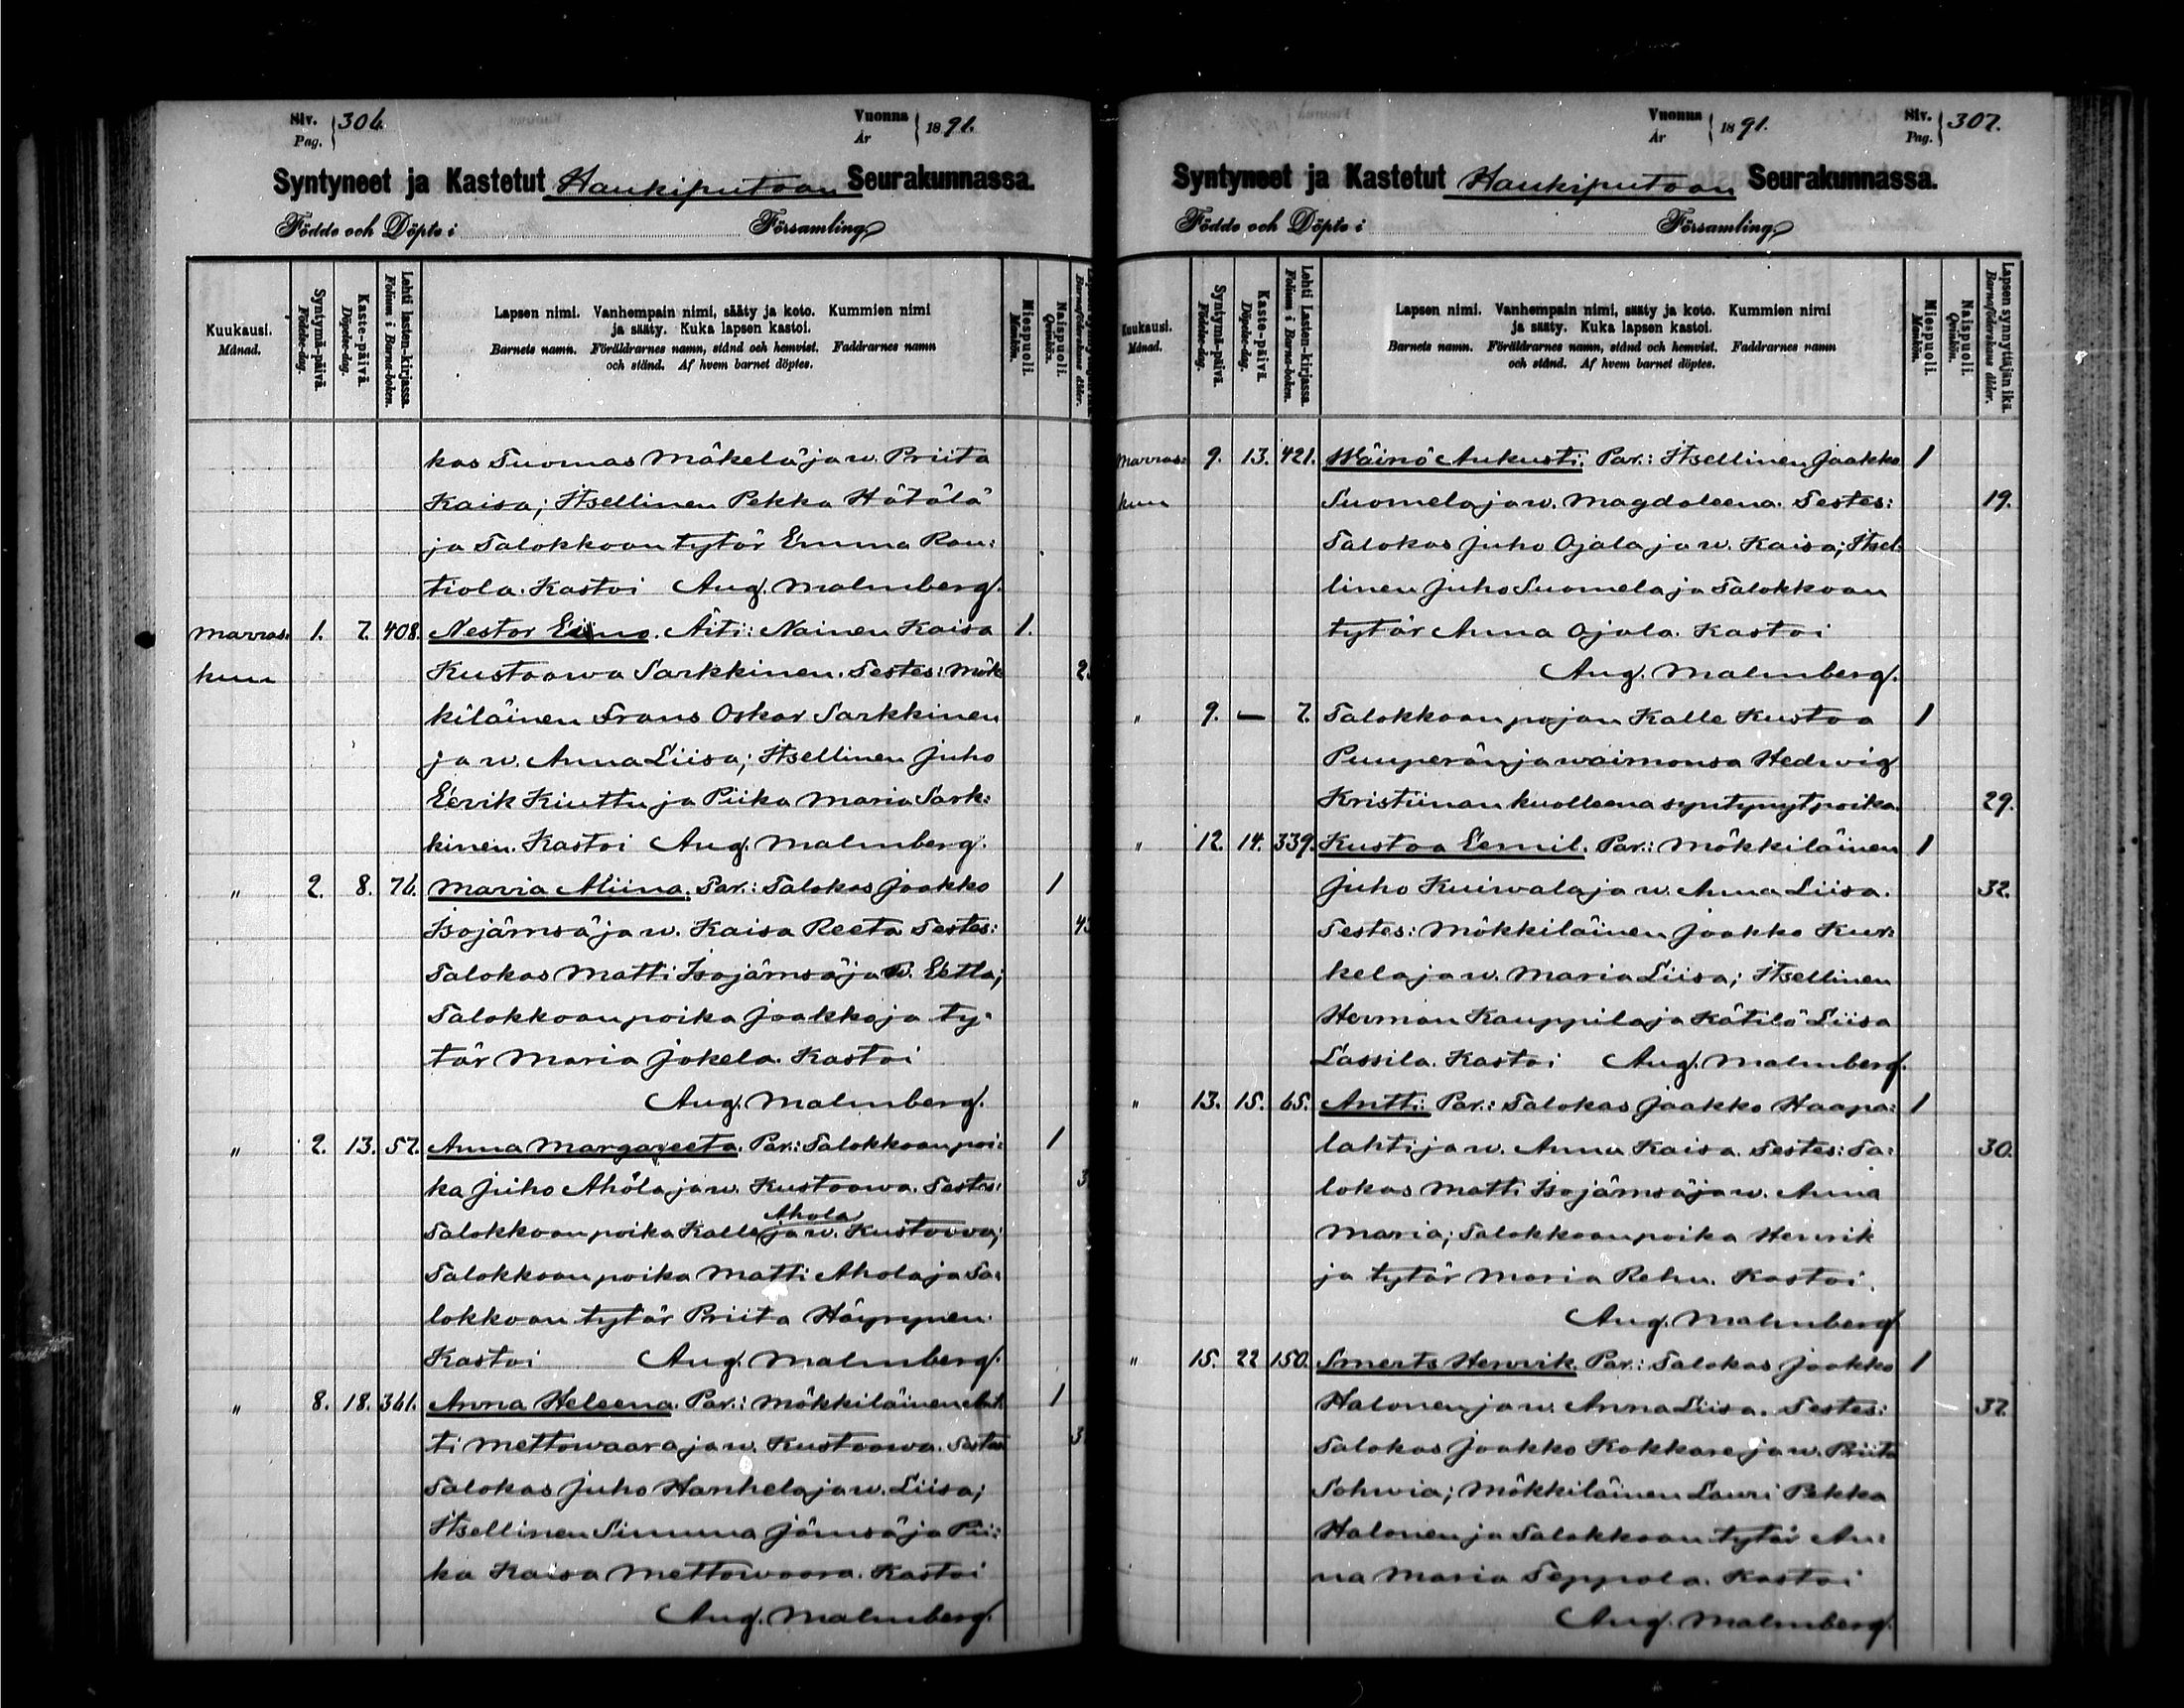 Siv. Pag. 306.
Vuonna År 1891.
Syntyneet ja Kastetut Haukiputaan Seurakunnassa.
Födde och Döpte i Församling
Kuukausi. Månad.
Syntymä-päivä. Födelse-dag.
Kaste-päivä. Döpelse-dag.
Lehti lasten-kirjassa. Folium i Barna-boken.
Lapsen nimi. Vanhempain nimi, sääty ja koto. Kummien nimi
ja sääty. Kuka lapsen kastoi.
Barnets namn. Föräldrarnes namn, stånd och hemvist. Faddrarnes namn
och stånd. Af hvem barnet döptes.
Miespuoli. Mankön.
Naispuoli. Qvinkön.
Barnaföderskans ålder.
kas Tuomas Mäkelä ja w. Priita
Kaisa; Itsellinen Pekka Hätälä
ja Talokkaan tytär Emma Rau:
tiola. Kastoi Aug. Malmberg.
Marras: 1. 7. 408. Nestor Eino. Äiti: Nainen Kaisa 1.
kuu Kustaawa Sarkkinen. Testes: Mök
kiläinen Frans Oskar Sarkkinen
ja w. Anna Liisa; Itsellinen Juho
Eerik Kiuttu ja Piika Maria Sark:
kinen. Kastoi Aug. Malmberg.
" 2. 8. 76. Maria Miina. Par.: Talokas Jaakko 1
Isojämsä ja w. Kaisa Reeta Testes:
Talokas Matti Isojämsä ja w. Eetla;
Talokkaan poika Jaakko ja ty:
tär Maria Jokela. Kastoi
Aug. Malmberg.
" 2. 13. 57. Anna Margareeta. Par.: Talokkaan poi: 1
ka Juho Ahola ja w. Kustaawa. Testes:
Ahola
Talokkaan poika Kalle ja w. Kustaawa;
Talokkaan poika Matti Ahola ja Ta:
lokkaan tytär Priita Häyrynen.
Kastoi Aug. Malmberg.
" 8. 18. 361. Anna Heleena. Par.: Mökkiläinen Ant: 1
ti Mettowaara ja w. Kustaawa. Testes
Talokas Juho Hanhela ja w. Liisa;
Itsellinen Simuna Jämsä ja Pii:
ka Kaisa Mettowaara. Kastoi
Aug. Malmberg.
Vuonna År 1891.
Siv. Pag. 307.
Syntyneet ja Kastetut Haukiputaan Seurakunnassa.
Födde och Döpte i Församling
Kuukausi. Månad.
Syntymä-päivä. Födelse-dag.
Kaste-päivä. Döpelse-dag.
Lehti Lasten-kirjassa. Folium i Barna-boken.
Lapsen nimi. Vanhempain nimi, sääty ja koto. Kummien nimi
ja sääty. Kuka lapsen kastoi.
Barnets namn. Föräldrarnes namn, stånd och hemvist. Faddrarnes namn
och stånd. Af hvem barnet döptes.
Miespuoli. Mankön.
Naispuoli. Qvinkön.
Lapsen synnyttäjän ikä. Barnaföderskans ålder.
Marras: 9. 13. 421. Wäinö Aukusti. Par.: Itsellinen Jaakko 1
kuu Suomela ja w. Magdaleena. Testes: 19.
Talokas Juho Ojala ja w. Kaisa; Itsel:
linen Juho Suomela ja Talokkaan
tytär Anna Ojala. Kastoi
Aug. Malmberg.
" 9. — 7. Talokkaan pojan Kalle Kustaa 1
Puuperän ja waimonsa Hedwig
Kristiinan kuolleena syntynyt poika. 29.
" 12. 14. 339. Kustaa Eemil. Par.: Mökkiläinen 1
Juho Kuiwala ja w. Anna Liisa. 32.
Testes: Mökkiläinen Jaakko Kur:
kela ja w. Maria Liisa; Itsellinen
Herman Kauppila ja Kätilö Liisa
Lassila. Kastoi Aug. Malmberg.
" 13. 15. 65. Antti. Par.: Talokas Jaakko Haapa: 1
lahti ja w. Anna Kaisa. Testes: Ta: 30.
lokas Matti Isojämsä ja w. Anna
Maria; Talokkaan poika Henrik
ja tytär Maria Rehu. Kastoi.
Aug. Malmberg
" 15. 22 150. Smerts Henrik. Par.: Talokas Jaakko 1
Halonen ja w. Anna Liisa. Testes: 37.
Talokas Jaakko Kokkare ja w. Priita
Sohwia; Mökkiläinen Lauri Pekka
Halonen ja Talokkaan tytär An:
na Maria Seppola. Kastoi
Aug. Malmberg.